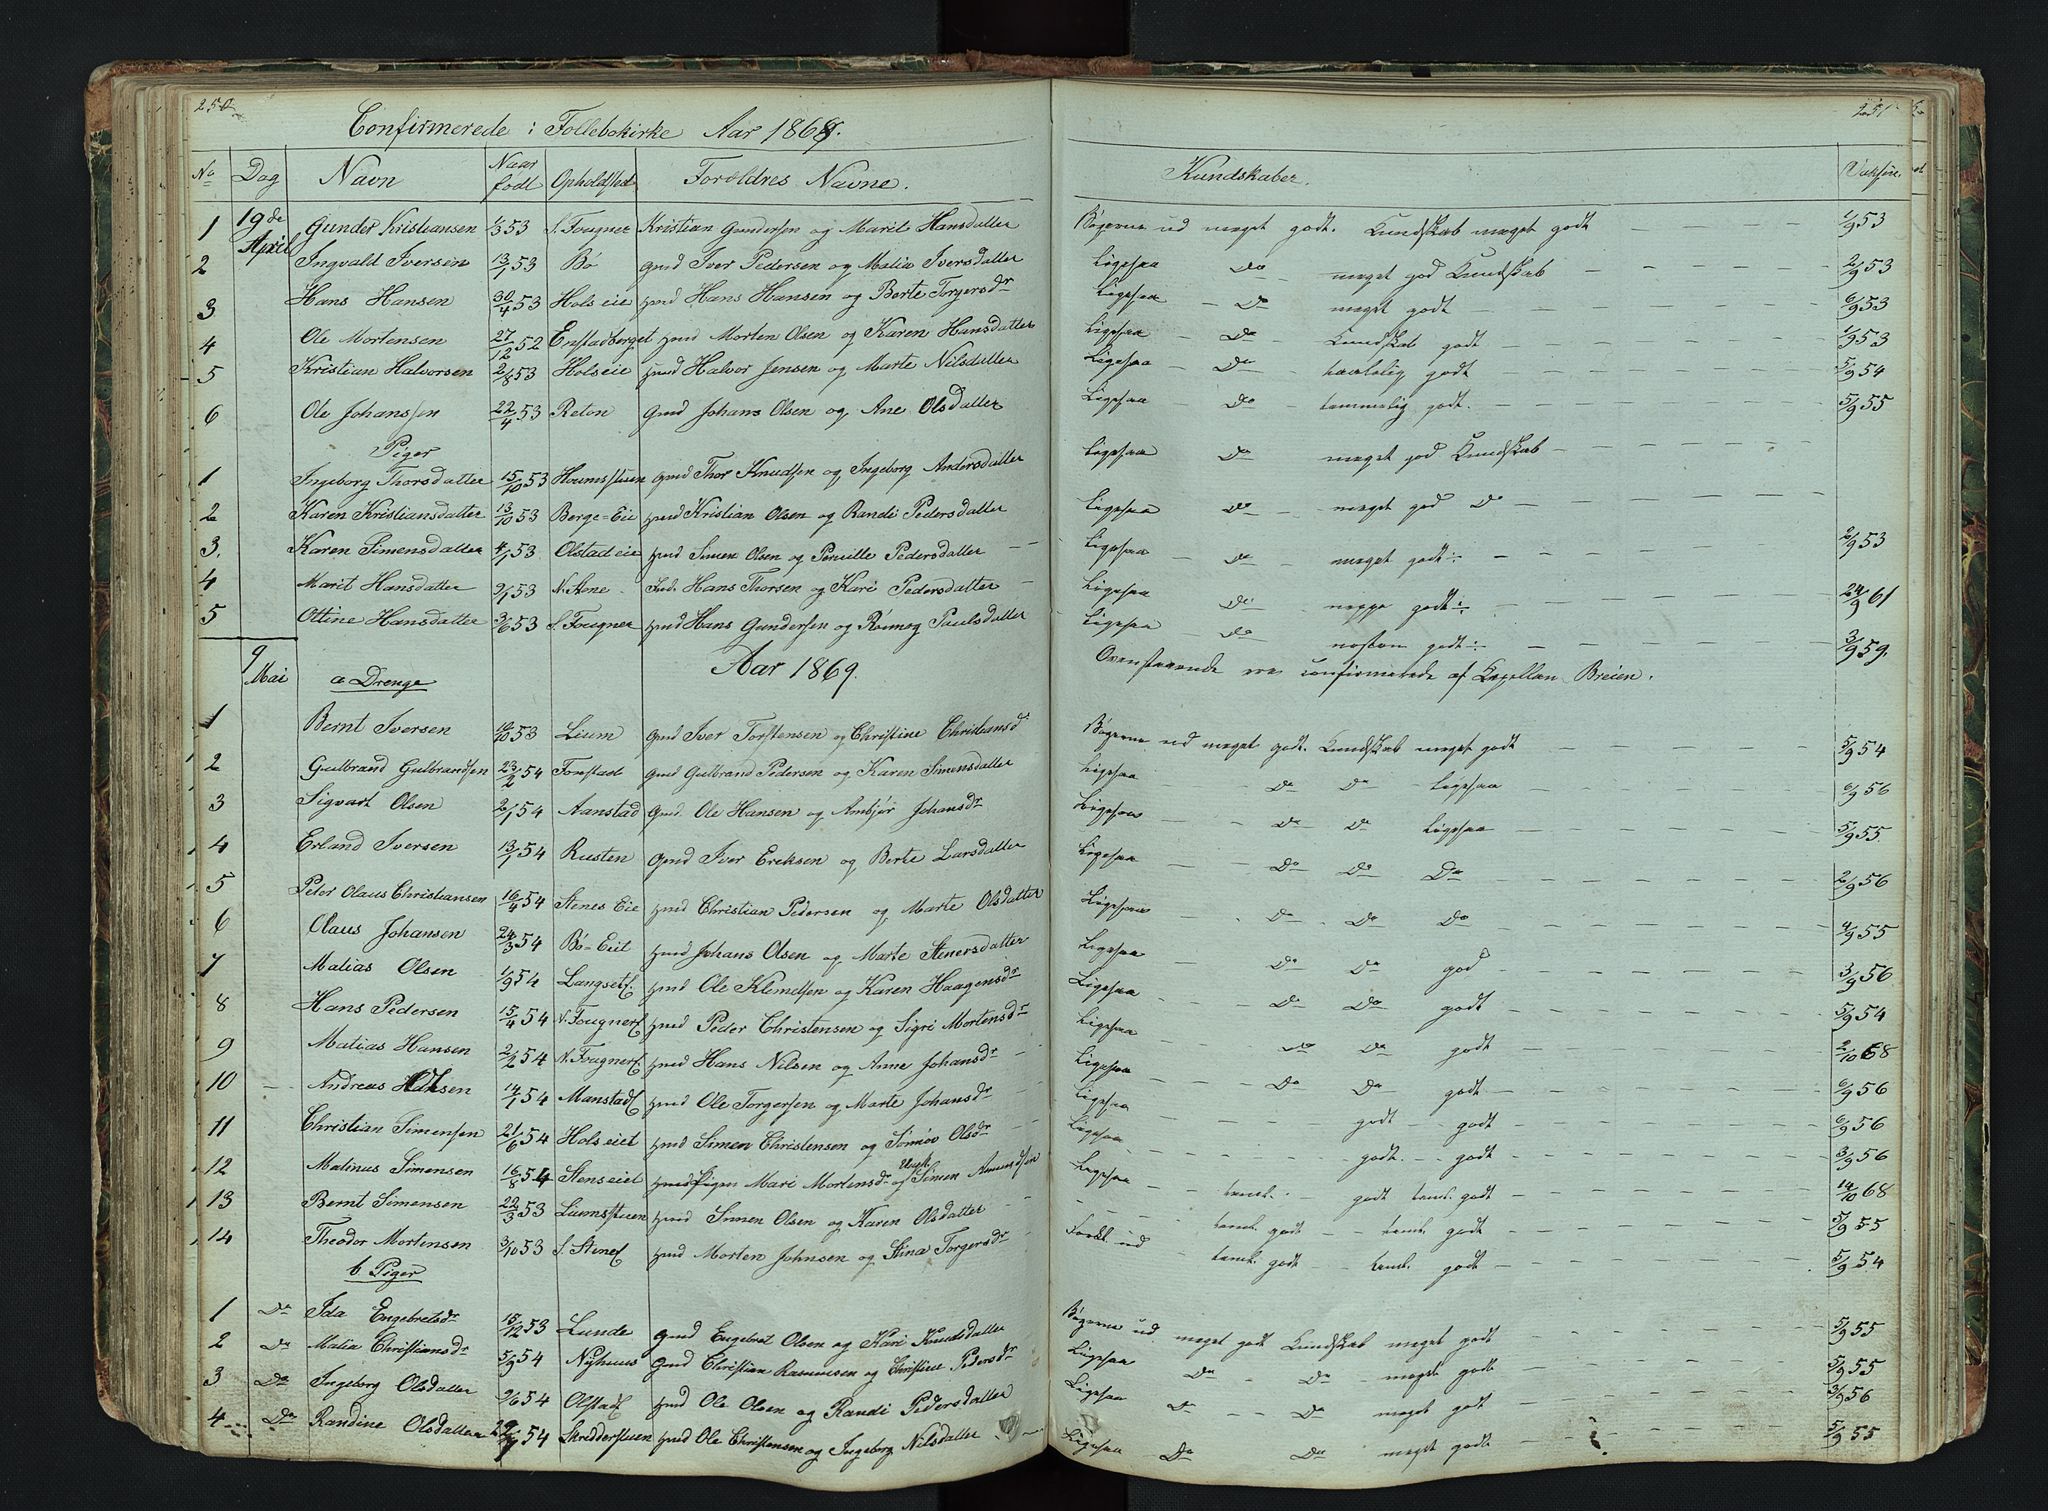 250
Confirmerede i Follebokirke Aar 1868.
No Dag Navn Naar født Opholdsted Forældres Navne.
1 19de April Gunder Kristiansen 1/3 53 S. Fougner Kristian Gundersen og Marit Hansdatter
2 Ingvald Iversen 13/1 53 Bø Gmd Iver Pedersen og Matia Iversdatter
3 Hans Hansen 30/4 53 Hols eie Hmd Hans Hansen og Berte Torgersdr
4 Ole Mortensen 27/12 52 Enstadberget Hmd Morten Olsen og Karen Hansdatter
5 Kristian Halvorsen 2/8 53 Hols eie Hmd Halvor Jensen og Marte Nilsdatter
6 Ole Johanssen 22/4 53 Reton Gmd Johans Olsen og Ane Olsdatter
Piger
1 Ingeborg Thorsdatter 15/10 53 Gmd Thor Knudsen og Ingeborg Andersdatter
2 Karen Kristiansdatter 13/10 53 Berge=Eie Hmd Kristian Olsen og Randi Pedersdatter
3. Karen Simensdatter 4/1 53 Olstad eie Hmd Simen Olsen og Pernille Pedersdatter
4 Marit Hansdatter 9/1 53 N. Stene Hans Thorsen og Kari Pedersdatter
5 Ottine Hansdatter 3/6 53 S. Fougner Hmd Hans Gundersen og Rønnog Paulsdatter
9 Mai a Drenge Aar 1869.
1 Bernt Iversen 53 Lium Gmd Iver Torstensen og Christine Christiansdr
2 Gulbrand Gulbrandsen 23/2 54 Fonstad Gmd Gulbrand Pedersen og Karen Simensdatter
3 Sigvart Olsen 2/1 54 Aanstad Gmd. Ole Hansen og Ambjør Johansdr
4 Erland Iversen 13/1 54 Rusten Gmd Iver Eriksen og Berte Larsdatter
5 Peter Olaus Christiansen 16/4 54 Stenes Eie Hmd Christian Pedersen og Marte Olsdatter
6 Olaus Johansen 24/3 54 Bø=Eit Hmd Johans Olsen og Marte Stenersdatter
7 Matias Olsen 1/9 54 Hmd Ole Klemetsen og Karen Haagensdr
8 Hans Pedersen 15/4 54 Hmd Peder Christensen og Sigri Mortensdr
9 Matias Hansen 2/2 54 Hmd Hans Nilsen og Anne Johansdr
10 Andreas 14/1 54 Hmd Ole Torgersen og Marte Johansdr
11 Christian Simensen 21/6 54 Hols eiet Hmd Simen Christensen og Olsdr
12 Matinus Simensen 16/8 54 Stens eiet Pigen Mari Mortensdr og Ukgft Simen Amundsen
13 Bernt Simensen 22/3 53 Liumsstuen Hmd Simen Olsen og Karen Olsdatter
14 Theodor Mortensen 3/10 53 Hmd Morten Johnsen og Stina Torgersdr
b Piger
1 Do Ida Engebretsdr 15/12 53 Lunde Gmd Engebret Olsen og Kari Knudsdatter
2 Do Matia Christiansdr 5/9 54 Nyhuus Gmd Christian Rasmussen og Christine Pedersdr
3 Do Ingeborg Olsdatter 9/6 54 Hmd Ole Olsen og Randi Pedersdatter
4 Do Randine Olsdatter 54 Skredderstuen Hmd Ole Christensen og Ingeborg Nilsdatter
251
Kundskaber. Vaksine.
Bøgerne ud meget godt. Kundskab meget godt 1/9 53
Ligesaa Do meget god Kundskab 2/9 53
Ligesaa Do meget godt 6/9 53
Ligesaa Do Kundskab godt 1/9 53
Ligesaa Do godt 5/9 54
Ligesaa Do temmelig godt 5/9 55
Ligesaa Do meget god Kundskab
Ligesaa Do meget god Do
Ligesaa Do meget godt 2/9 53
Ligesaa Do neppe godt 24/9 61
Ligesaa Do næsten godt 3/9 59.
Ovenstaaende ere confirmerede af Kapellan Breien.
Bøgerne ud meget godt. Kundskab meget godt 5/9 54
Ligesaa Do Do Ligesaa 6/9 56
Ligesaa Do Do Ligesaa 5/9 55
Ligesaa Do Do Do 2/9 56
Ligesaa Do Do Do 55
Ligesaa Do Do god 3/9 56
Ligesaa Do Do godt 5/9 54
Ligesaa Do Do godt 2/10 68
Ligesaa Do Do godt 6/9 56
Ligesaa godt godt 6/9 56
Ligesaa godt godt 3/9 56
Ligesaa teml. godt teml. godt 14/10 68
teml. godt teml. godt 5/9 55
ud teml. godt teml. godt 5/9 54
Bøgerne ud meget godt Kundskab meget godt 5/9 55
Ligesaa Do Do meget godt 5/9 55
Ligesaa Do Do meget godt 3/9 56
Ligesaa Do Do meget godt 5/9 55